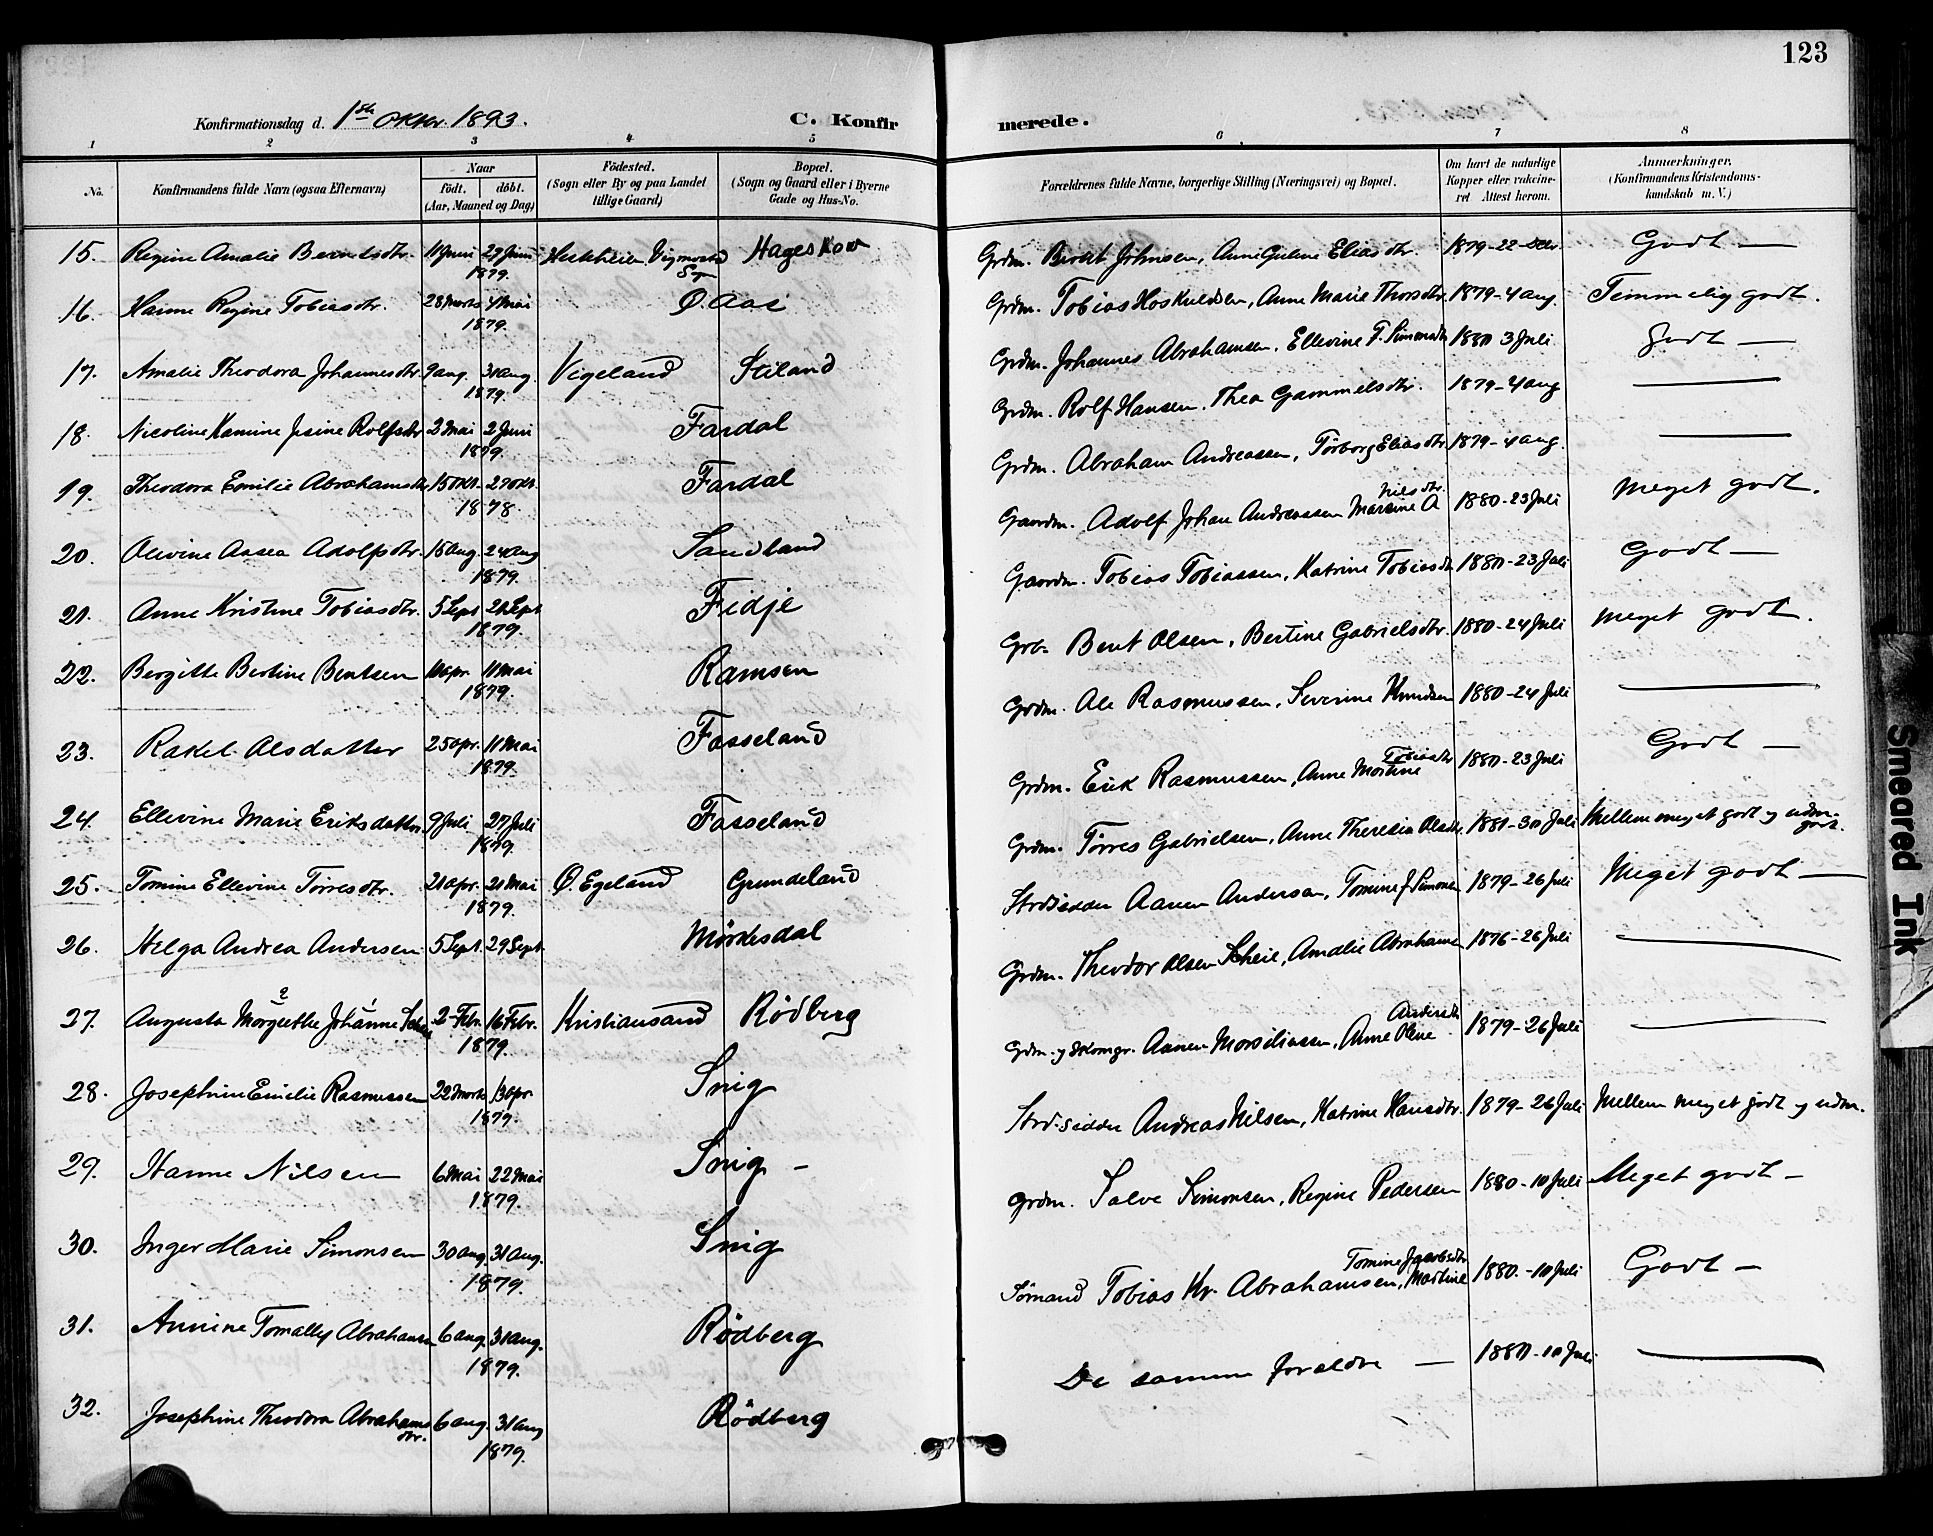 123
Konfirmationsdag d. 1ste Oktbr. 1893.
C. Konfirmerede.
1 2 3 4 5 6 7 8
No. Konfirmandens fulde Navn (ogsaa Efternavn) Naar Födested. Bopæl. Forældrenes fulde Navne, borgerlige Stilling (Næringsvei) og Bopæl. Om havt de naturlige Anmærkninger.
födt. döbt. (Sogn eller By og paa Landet (Sogn og Gaard eller i Byerne Kopper eller vakcine- (Konfirmandens Kristendoms-
(Aar, Maaned og Dag) tillige Gaard) Gade og Hus-No. ret Attest herom. kundskab m. V.)
15. Regine Amalie Berntsdtr. 11 Juni 29 Juni 1879. Vigmostad Sg Hageskov Grdm. Bernt Johnsen, Anne Guline Eliasdtr. 1879-22-Dcbr. Godt —
16. Hanne Regine Tobiasdtr. 28 Marts 4 Mai 1879. Ø. Aas Grdm. Tobias Hoskuldsen, Anne Marie Thorsdtr. 1879-4 aug. Temmelig godt.
17. Amalie Theodora Johannesdtr. 9 aug. 31 aug. 1879. Vigeland Stiland Grdm. Johannes Abrahamsen, Ellevine T. Simonsdtr 1880 3 Juli Godt —
18. Nicoline Kamine Jesine Rolfsdtr 2 Mai 2 Juni 1879. Fardal Grdm. Rolf Hansen, Thea Gammelsdtr. 1879-4 aug —
19. Theodora Emilie Abrahamsdtr 15 Okt. 27 Okt. 1878. Fardal Grdm. Abraham Andreassen, Törborg Eliasdtr. 1879-4 aug. —
20. Olevine Aasea Adolfsdtr. 15 aug. 24 aug 1879. Sandland Gaardm. Adolf Johan Andreassen Martine A Nilsdtr. 1880-23 Juli Meget godt.
21. Anne Kristine Tobiasdtr. 5 Sept 21 Sept 1879. Fidje Gaardm. Tobias Tobiassen, Katrine Tobiasdtr 1880-23 Juli Godt —
22. Bergitte Bertine Bentsen 11 Mai 1879. Ramsen Grb. Bent Olsen, Bertine Gabrielsdtr. 1880-24 Juli Meget godt.
23. Rakel Alsdatter 25 apr. 11 Mai 1879. Fasseland Grdm. Ale Rasmussen, Severine Knudsen 1880-24 Juli —
24. Ellevine Marie Eriksdatter 9 Juli 27 Juli 1879. Fasseland Grdm. Erik Rasmussen, Anne Martine Tobiasdtr 1880-23 Juli Godt —
25. Tomine Ellevine Törresdtr. 21 apr. 21 Mai 1879. Ø. Egeland Grundeland Grdm. Törres Gabrielsen, Anne Theresia Olsdtr. 1881-30 Juli Mellem meget godt og udm. godt.
26. Helga Andrea Andersen 5 Sept. 29 Sept. Mördesdal Strdsidder Aanen Andersen, Tomine J. Simonsen 1879-26 Juli Meget godt —
27. Augusta Margrethe Johanne 2 Febr. 16 Febr. 1879. Kristiansand Rödberg Grdm. Theodor Olsen Scheie, Amalie Abrahamsen 1876-26 Juli —
28. Josephine Emilie Rasmussen 22 Marts 13 apr. 1879. Snig Grdm. og Aanen Anne Olene Andersdtr 1879-26 Juli —
29. Hanne Nilsen 6 Mai 22 Mai 1879. Snig — Strdsidder Andreas Nilsen, Katrine Hansdtr. 1879-26 Juli Mellem meget godt og udm.
30. Inger Marie Simonsen 30 aug. 31 aug. 1879. Snig Grdm. Salve Simonsen, Regine Pedersen 1880-10 Juli Meget godt —
31. Annine Tomally Abrahamsen 6 aug. 31 aug. 1879. Rödberg Sömand Tobias Kr. Abrahamsen, Tomine Jacobsdtr Martine 1880-10 Juli Godt —
32. Josephine Theodora Abrahamsdtr. 6 aug. 31 aug 1879. Rödberg De samme forældre — 1880-10 Juli —
Smeared Ink